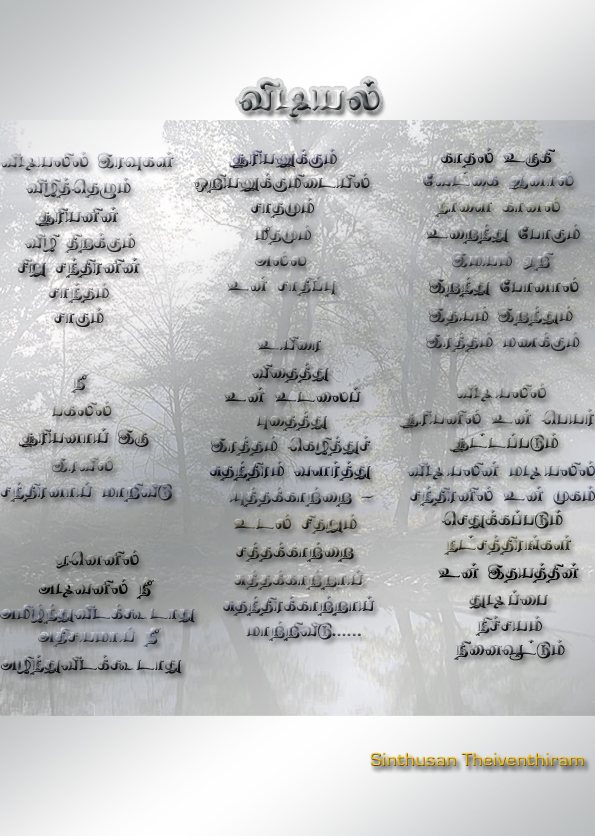 விடியல்
விடியலில் இரவுகள்
விழித்தெழும்
சூரியனின்
விழி திறக்கும்
சிறு சந்திரனின்
சாந்தம்
சாகும்
நீ
பகலில்
சூரியனாய் இரு
இரவில்
சந்திரனாய் மாறிவிடு
ஏனெனில்
அடிவானில் நீ
அமிழ்ந்துவிடக்கூடாது
அதிசயமாய் நீ
அழிந்துவிடக்கூடாது
சூரியனுக்கும்
ஒறியனுக்குமிடையில்
சாதமும்
மீதமும்
அல்ல
உன் சாதிப்பு
உயிரை
விதைத்து
உன் உடலைப்
புதைத்து
இரத்தம் கெழித்துச்
சுதந்திரம் வளர்த்து
யுத்தக்காற்றை –
உடல் சிதறும்
சத்தக்காற்றை
சுத்தக்காற்றாய்
சுதந்திரக்காற்றாய்
மாற்றிவிடு......
காதல் உருகி
வேட்கை ஆனால்
நாளை காலை
உறைந்து போகும்
இமயம் ஏறி
இறந்து போனால்
இதயம் இறந்தும்
இரத்தம் மணக்கும்
விடியலில்
சூரியனில் உன் பெயர்
சூட்டப்படும்
விடியலின் மடியலில்
சந்திரனில் உன் முகம்
செதுக்கப்படும்
நட்சத்திரங்கள்
உன் இதயத்தின்
துடிப்பை
நிச்சயம்
நினைவூட்டும்
Sinthusan Theiventhiram